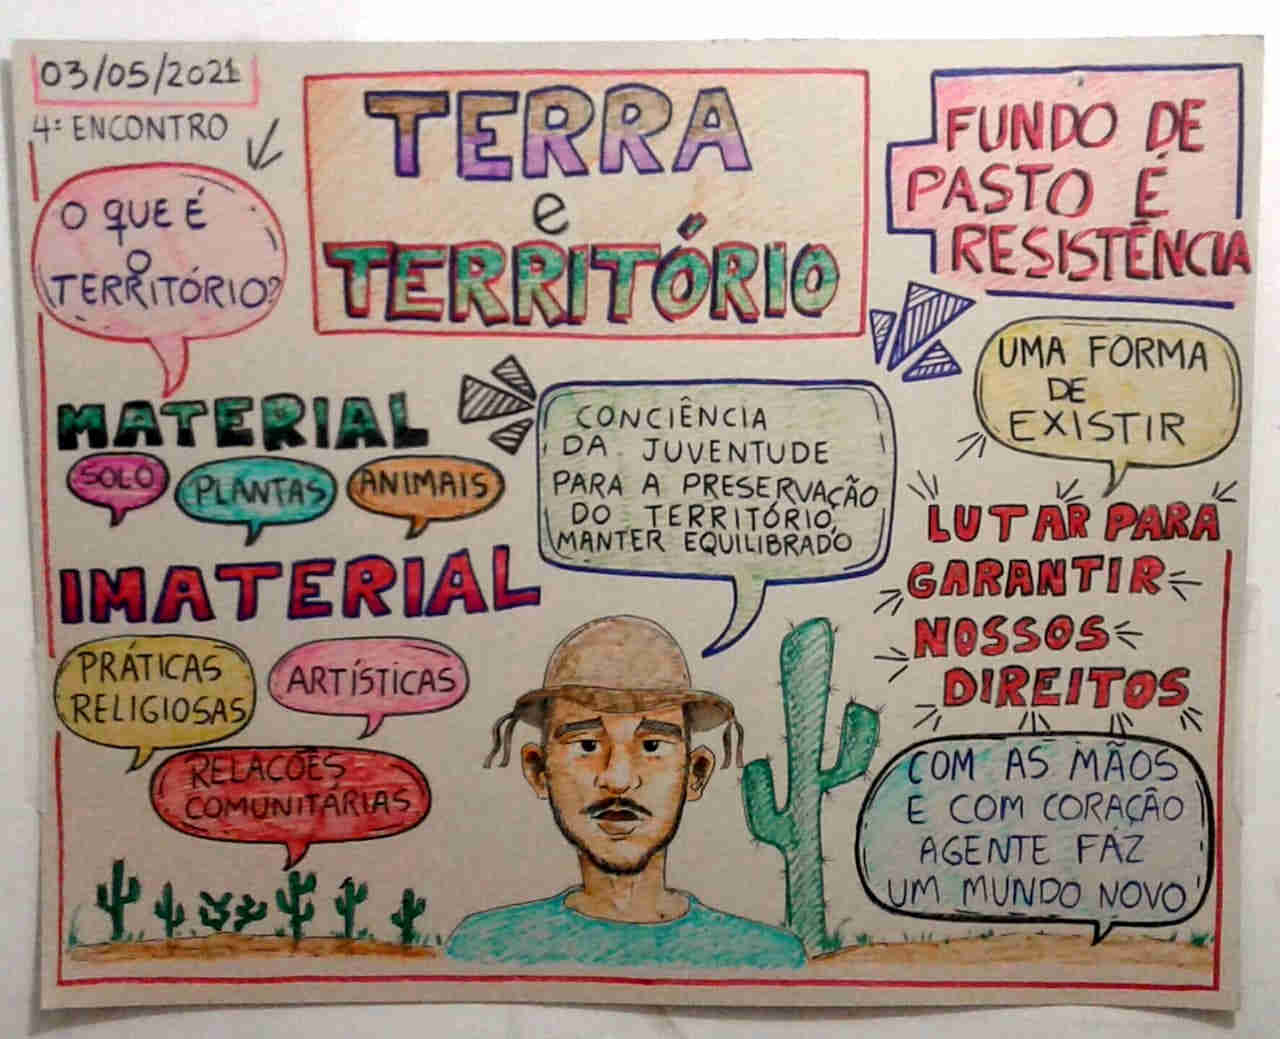 03/05/2021
4º ENCONTRO
O QUE É
O
TERRITÓRIO?
TERRA
e
TERRITÓRIO
FUNDO DE
PASTO É
RESISTÊNCIA
UMA FORMA
DE
EXISTIR
MATERIAL
SOLO
PLANTAS
ANIMAIS
CONCIÊNCIA
DA JUVENTUDE
PARA A PRESERVAÇÃO
DO TERRITÓRIO,
MANTER EQUILIBRADO
LUTAR PARA
GARANTIR
NOSSOS
DIREITOS
IMATERIAL
PRÁTICAS
RELIGIOSAS
ARTÍSTICAS
RELACÕES
COMUNITÁRIAS
COM AS MÃOS
E COM CORAÇÃO
AGENTE FAZ
UM MUNDO NOVO